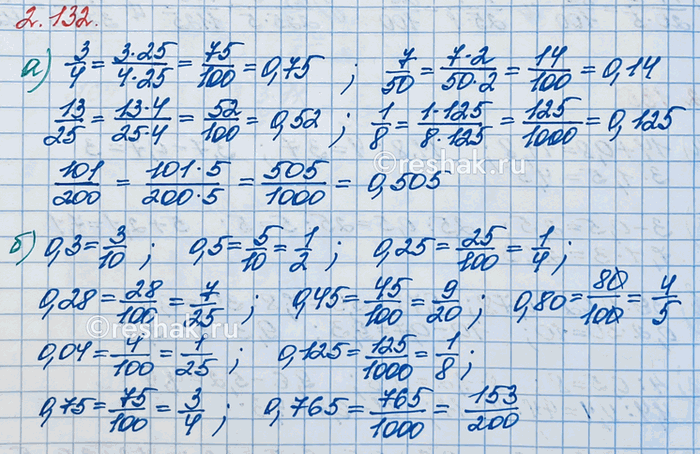 2.132.
а) 3/4 = 3·25/4·25 = 75/100 = 0,75 ; 7/50 = 7·2/50·2 = 14/100 = 0,14
13/25 = 13·4/25·4 = 52/100 = 0,52 ; 1/8 = 1·125/8·125 = 125/1000 = 0,125
©reshak.ru
101/200 = 101·5/200·5 = 505/1000 = 0,505
б) 0,3 = 3/10 ; 0,5 = 5/10 = 1/2 ; 0,25 = 25/100 = 1/4 ;
0,28 = 28/100 = 7/25 ; 0,45 = 45/100 = 9/20 ; 0,80 = 80/100 = 4/5
©reshak.ru
0,04 = 4/100 = 1/25 ; 0,125 = 125/1000 = 1/8 ;
0,75 = 75/100 = 3/4 ; 0,765 = 765/1000 = 153/200